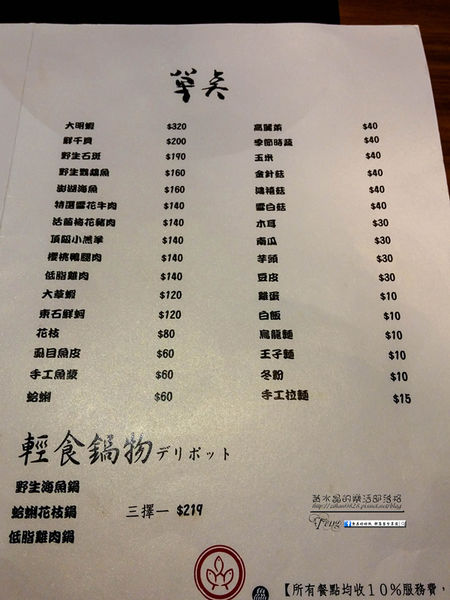 單点
大明蝦 $320
鮮干貝 $200
野生石斑 $190
野生鸚鵡魚 $160
澎湖海魚 $160
特選雪花牛肉 $140
活菌梅花豬肉 $140
頂級小羔羊 $140
櫻桃鴨腿肉 $140
低脂雞肉 $140
大草蝦 $120
東石鮮蚵 $120
花枝 $80
虱目魚皮 $60
手工魚漿 $60
蛤蜊 $60
高麗菜 $40
季節時蔬 $40
玉米 $40
金針菇 $40
鴻禧菇 $40
雪白菇 $40
木耳 $30
南瓜 $30
芋頭 $30
豆皮 $30
雞蛋 $10
白飯 $10
烏龍麵 $10
王子麵 $10
冬粉 $10
手工拉麵 $15
輕食鍋物デリポット
野生海魚鍋
蛤蜊花枝鍋 三擇一 $219
低脂雞肉鍋
【所有餐點均收10%服務費，